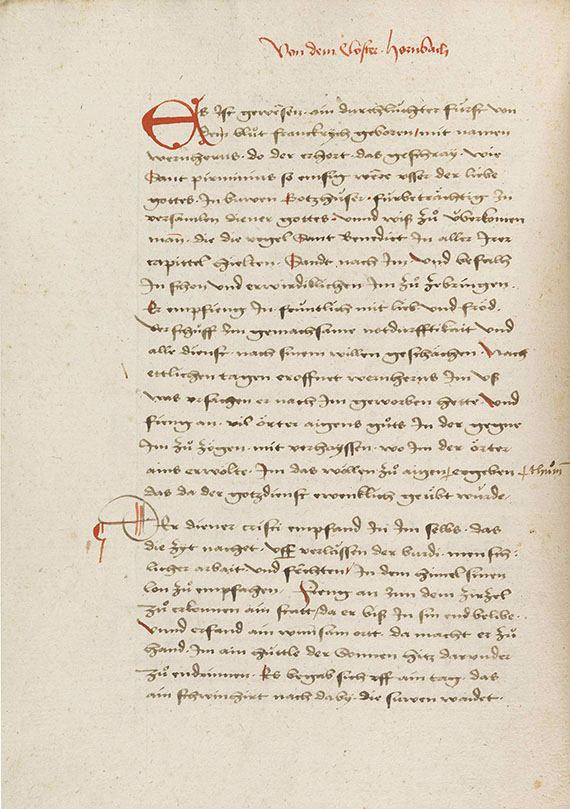 Von dem Closter hornbach
Es Ist gewesen · ain durchluchter furst von
dem blůt franckrych geboren / mit namen
wernherus · do der erhort · das geschray · wie
Sant pirminius so emsig were vsser der liebe
gottes · In buwen Gotzhüser · fürbetrachtig In
versamlen diener gottes · vnnd wiß zů überkomen
man · die die regel Sant Benedict In aller Irer
capittel hielten · Sandt nach Im · vnd befalch
In schon vnd erwirdiklichen Im zů zebringen ·
Er empfieng In fruntlich mit lieb vnd fröd ·
Verschůff Im gemachsame notdurfftikait vnd
alle dienst · nach sinem willen geschachen · Nach
ettlichen tagen eroffnet wernherus Im vß
was vrsachen er nach Im geworben hette · Vnd
fieng an · vil örter aigens gůts In der gegne
Im zů zögen · mit verhayssen · wo Im der örter
ains erwölte · Im das wöllen zů aigen ergeben
das da der gotzdienst ewenklich geübt wurde ·
Der diener cristi empfand In Im selbs · das
die zyt nachet · vff verlussen der burdi · mensch-
licher arbait vnd fechten / In dem himel sinen
lon zů empfachen · Fieng an Inn dem zirzel
zů erkonnen ain statt / da er biß In sin end belibe ·
Vnnd erfand ain wunsam ortt · da macht er zů
hand · Im ain hüttle der Sonnen hitz darunder
zů endrinnen · Es begab sich vff ain tag · das
ain schwinhirt nach daby · die suwen waidet ·